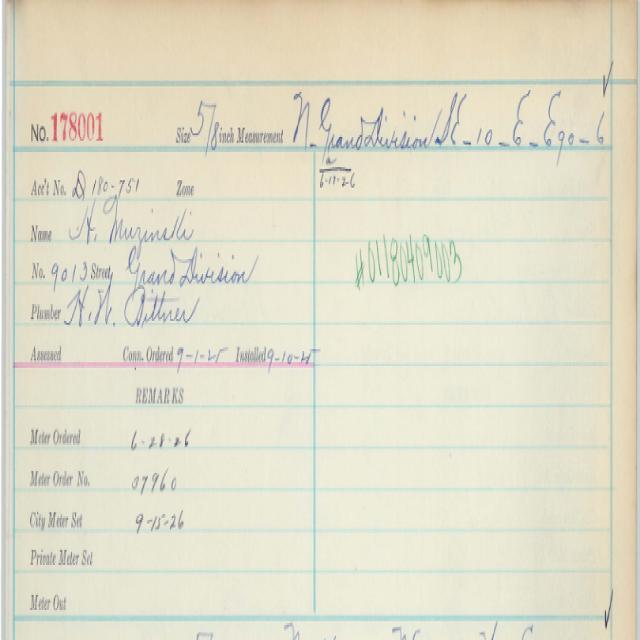 No. 178001 Size 5/8 inch Measurement N. Grand Division
6-11-26
Acc't No. D 180-751 Zone
Name H. Muzinski
#01180409003
No. 9013 Street Grand Division
Plumber H. W. Bittner
Assessed Conn. Ordered 9-1-25 Installed 9-10-25
REMARKS
Meter Ordered 6-28-26
Meter Order No. 07960
City Meter Set 9-15-26
Private Meter Set
Meter Out